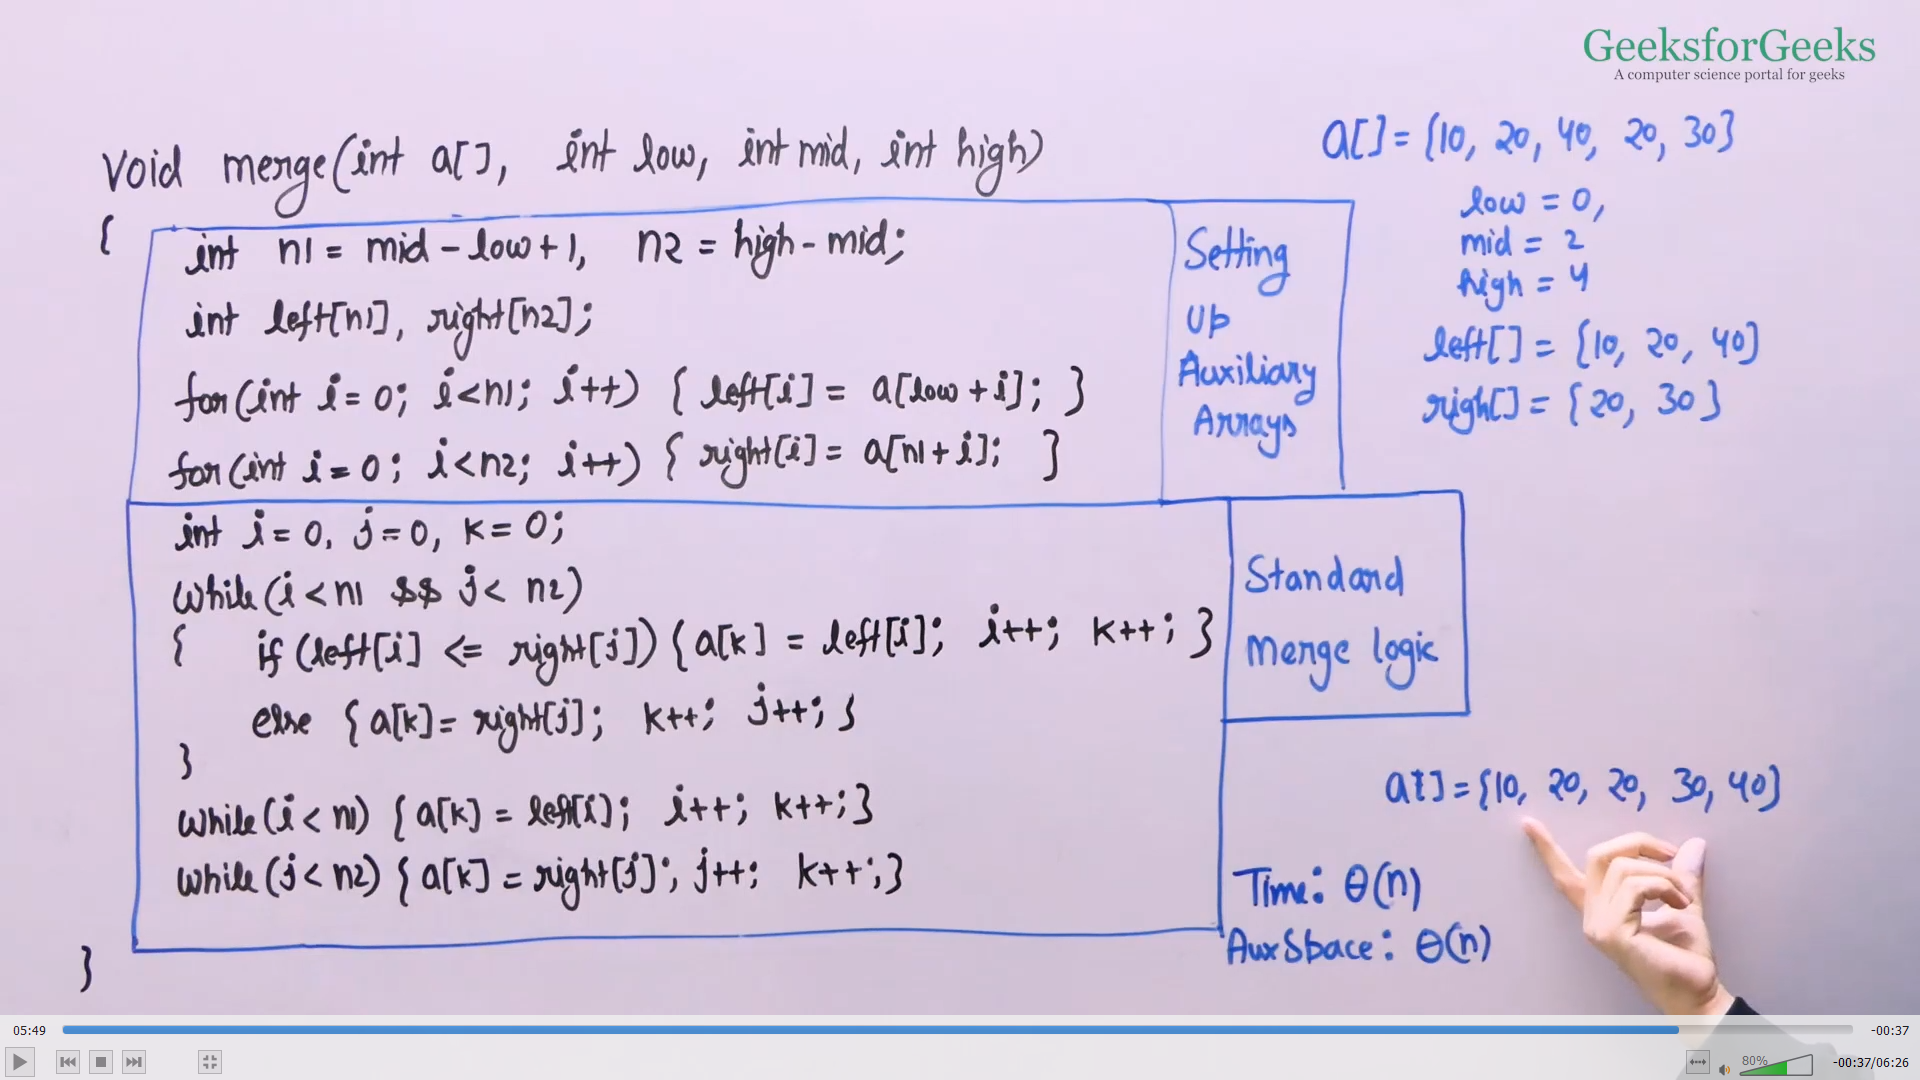 GeeksforGeeks
A computer science portal for geeks
void merge(int a[], int low, int mid, int high)
{
int n1 = mid - low + 1, n2 = high - mid;
int left[n1], right[n2];
for(int i = 0; i < n1; i++) { left[i] = a[low + i]; }
for(int i = 0; i < n2; i++) { right[i] = a[n1 + i]; }
Setting
Up
Auxiliary
Arrays
int i = 0, j = 0, k = 0;
while(i < n1 && j < n2)
{ if (left[i] <= right[j]) { a[k] = left[i]; i++; k++; }
else { a[k] = right[j]; k++; j++; }
}
while(i < n1) { a[k] = left[i]; i++; k++; }
while(j < n2) { a[k] = right[j]; j++; k++; }
}
Standard
Merge logic
a[] = {10, 20, 40, 20, 30}
low = 0,
mid = 2
high = 4
left[] = {10, 20, 40}
righ[] = {20, 30}
a[] = {10, 20, 20, 30, 40}
Time: θ(n)
Aux Space: θ(n)
05:49
-00:37
80%
-00:37/06:26